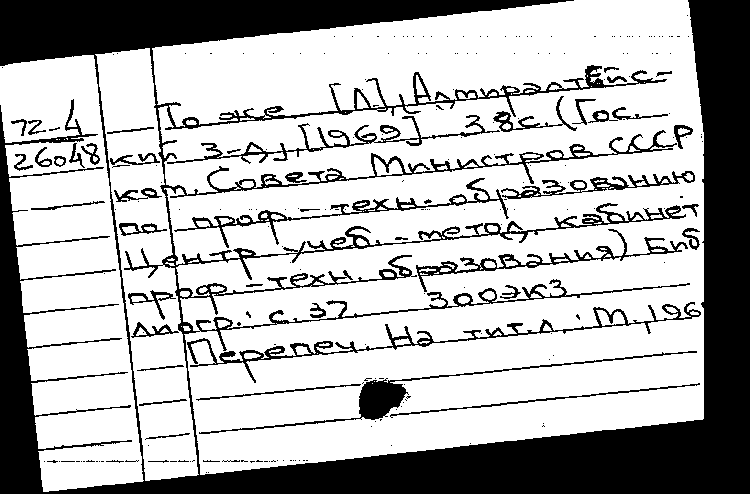 72-4
26048
То же [Л], Адмиралтейс-
кий з-д, [1969] 38с. (Гос.
ком. Совета Министров СССР
по проф.-техн. образованию.
Центр учеб.-метод. кабинет
проф.-техн. образования) Биб-
лиогр.: с. 37. 300экз.
Перепеч. На тит.л.: М., 196